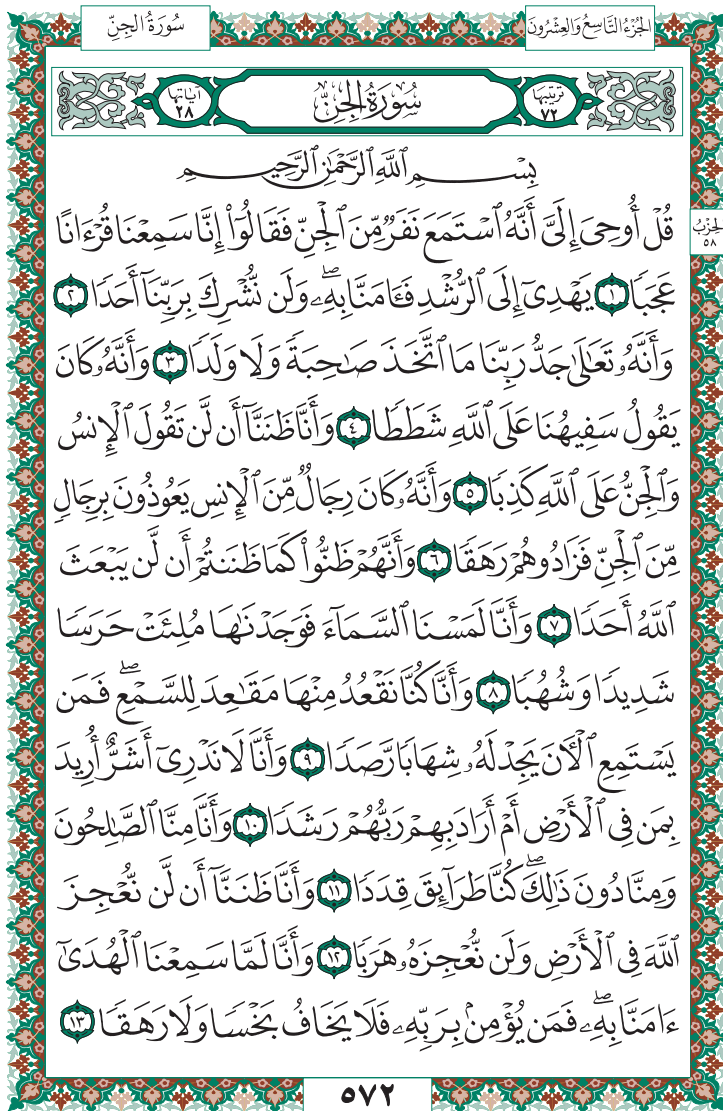 سُورَةُ الجِنِّ
الجُزْءُ التَّاسِعُ وَالعِشْرُونَ
ترتيبها ٧٢
سُورَةُ الجِنِّ
آياتها ٢٨
بِسْمِ ٱللَّهِ ٱلرَّحْمَٰنِ ٱلرَّحِيمِ
قُلْ أُوحِىَ إِلَىَّ أَنَّهُ ٱسْتَمَعَ نَفَرٌ مِّنَ ٱلْجِنِّ فَقَالُوٓا۟ إِنَّا سَمِعْنَا قُرْءَانًا
الحِزْبُ ٥٨
عَجَبًا ١ يَهْدِىٓ إِلَى ٱلرُّشْدِ فَـَٔامَنَّا بِهِۦ ۖ وَلَن نُّشْرِكَ بِرَبِّنَآ أَحَدًا ٢
وَأَنَّهُۥ تَعَٰلَىٰ جَدُّ رَبِّنَا مَا ٱتَّخَذَ صَٰحِبَةً وَلَا وَلَدًا ٣ وَأَنَّهُۥ كَانَ
يَقُولُ سَفِيهُنَا عَلَى ٱللَّهِ شَطَطًا ٤ وَأَنَّا ظَنَنَّآ أَن لَّن تَقُولَ ٱلْإِنسُ
وَٱلْجِنُّ عَلَى ٱللَّهِ كَذِبًا ٥ وَأَنَّهُۥ كَانَ رِجَالٌ مِّنَ ٱلْإِنسِ يَعُوذُونَ بِرِجَالٍ
مِّنَ ٱلْجِنِّ فَزَادُوهُمْ رَهَقًا ٦ وَأَنَّهُمْ ظَنُّوا۟ كَمَا ظَنَنتُمْ أَن لَّن يَبْعَثَ
ٱللَّهُ أَحَدًا ٧ وَأَنَّا لَمَسْنَا ٱلسَّمَآءَ فَوَجَدْنَٰهَا مُلِئَتْ حَرَسًا
شَدِيدًا وَشُهُبًا ٨ وَأَنَّا كُنَّا نَقْعُدُ مِنْهَا مَقَٰعِدَ لِلسَّمْعِ ۖ فَمَن
يَسْتَمِعِ ٱلْـَٔانَ يَجِدْ لَهُۥ شِهَابًا رَّصَدًا ٩ وَأَنَّا لَا نَدْرِىٓ أَشَرٌّ أُرِيدَ
بِمَن فِى ٱلْأَرْضِ أَمْ أَرَادَ بِهِمْ رَبُّهُمْ رَشَدًا ١٠ وَأَنَّا مِنَّا ٱلصَّٰلِحُونَ
وَمِنَّا دُونَ ذَٰلِكَ ۖ كُنَّا طَرَآئِقَ قِدَدًا ١١ وَأَنَّا ظَنَنَّآ أَن لَّن نُّعْجِزَ
ٱللَّهَ فِى ٱلْأَرْضِ وَلَن نُّعْجِزَهُۥ هَرَبًا ١٢ وَأَنَّا لَمَّا سَمِعْنَا ٱلْهُدَىٰٓ
ءَامَنَّا بِهِۦ ۖ فَمَن يُؤْمِنۢ بِرَبِّهِۦ فَلَا يَخَافُ بَخْسًا وَلَا رَهَقًا ١٣
٥٧٢